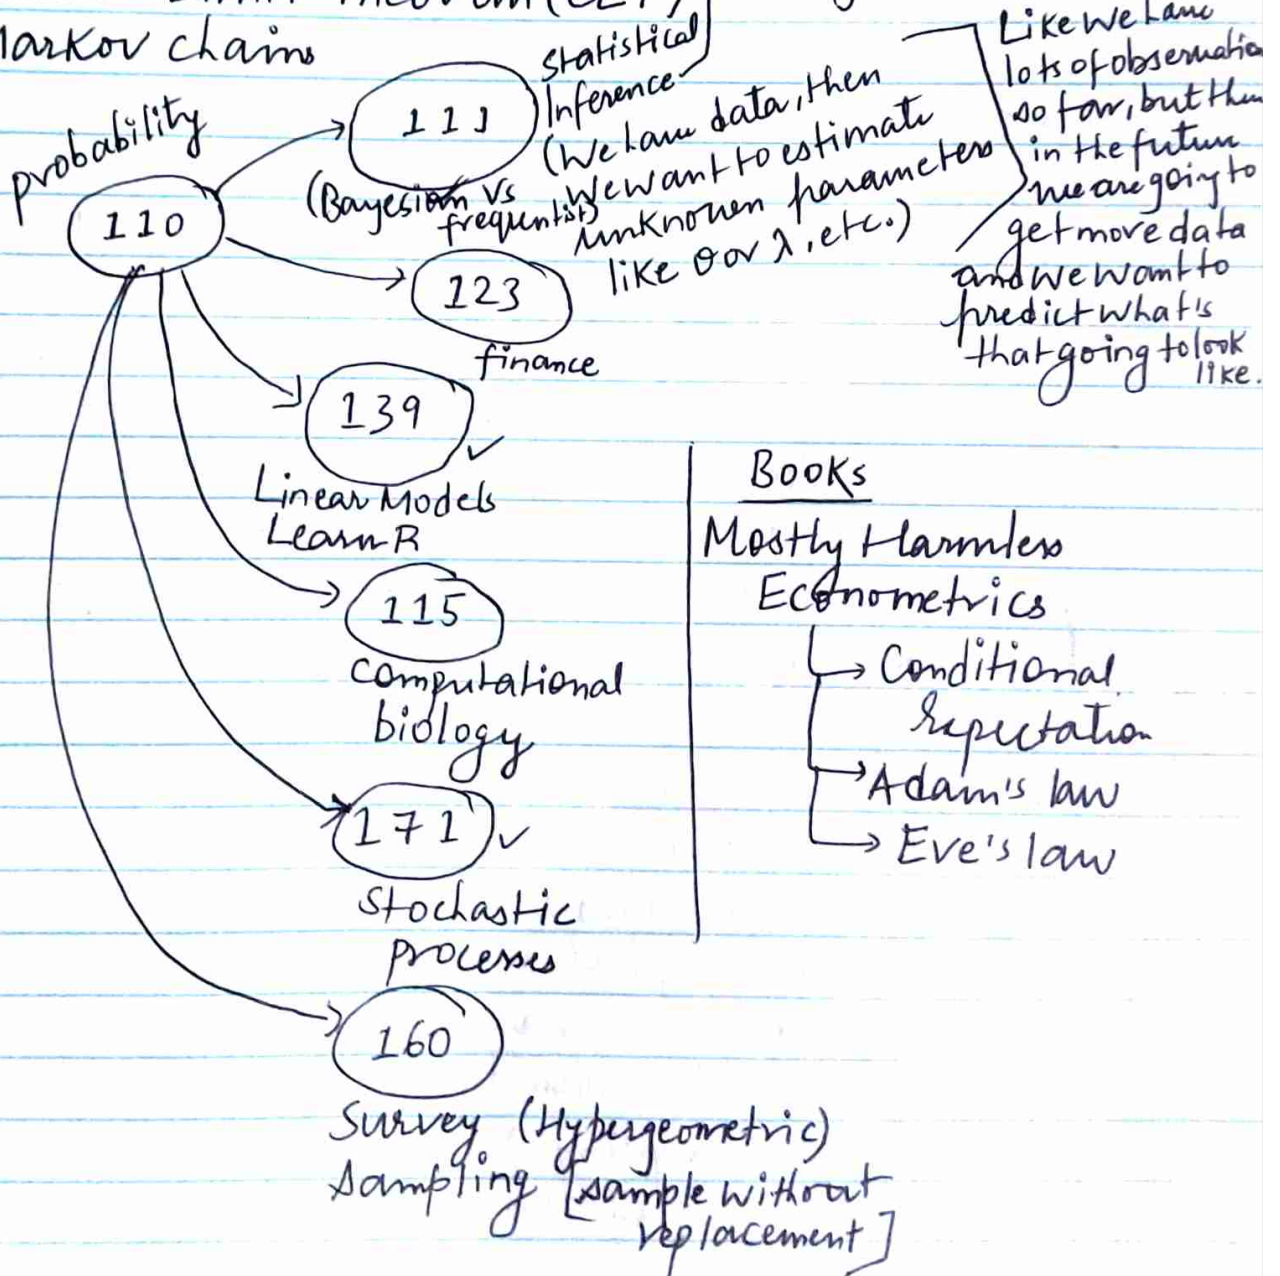 Markov chains
probability
110
111
Statistical
Inference
(We have data, then
we want to estimate
unknown parameters
like θ or λ, etc.)
(Bayesian vs
frequentist)
Like we have
lots of observation
so far, but then
in the future
we are going to
get more data
and we want to
predict what's
that going to look
like.
123
finance
139 ✓
Linear Models
Learn R
115
computational
biology
171 ✓
Stochastic
processes
160
Survey (Hypergeometric)
Sampling [sample without
replacement]
Books
Mostly Harmless
Econometrics
→ Conditional
Expectation
→ Adam's law
→ Eve's law